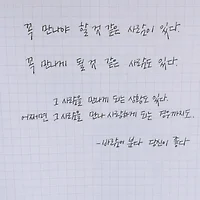 꼭 만나야 할 것 같은 사람이 있다.
꼭 만나게 될 것 같은 사람도 있다.
그 사람을 만나게 되는 상황도 있다.
어쩌면 그 사람을 만나 사랑하게 되는 경우까지도..
-바람이 분다 당신이 좋다